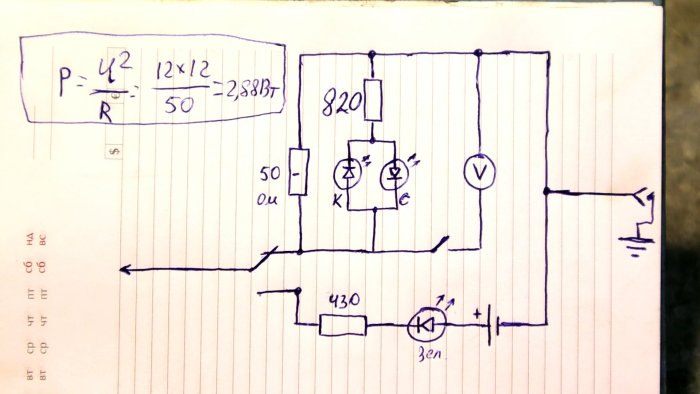 P = U² / R = 12×12 / 50 = 2,88Вт
820
50
ом
К
С
V
430
+
Зел.
$
€
вт ср чт пт сб нд
вт ср чт пт сб вс